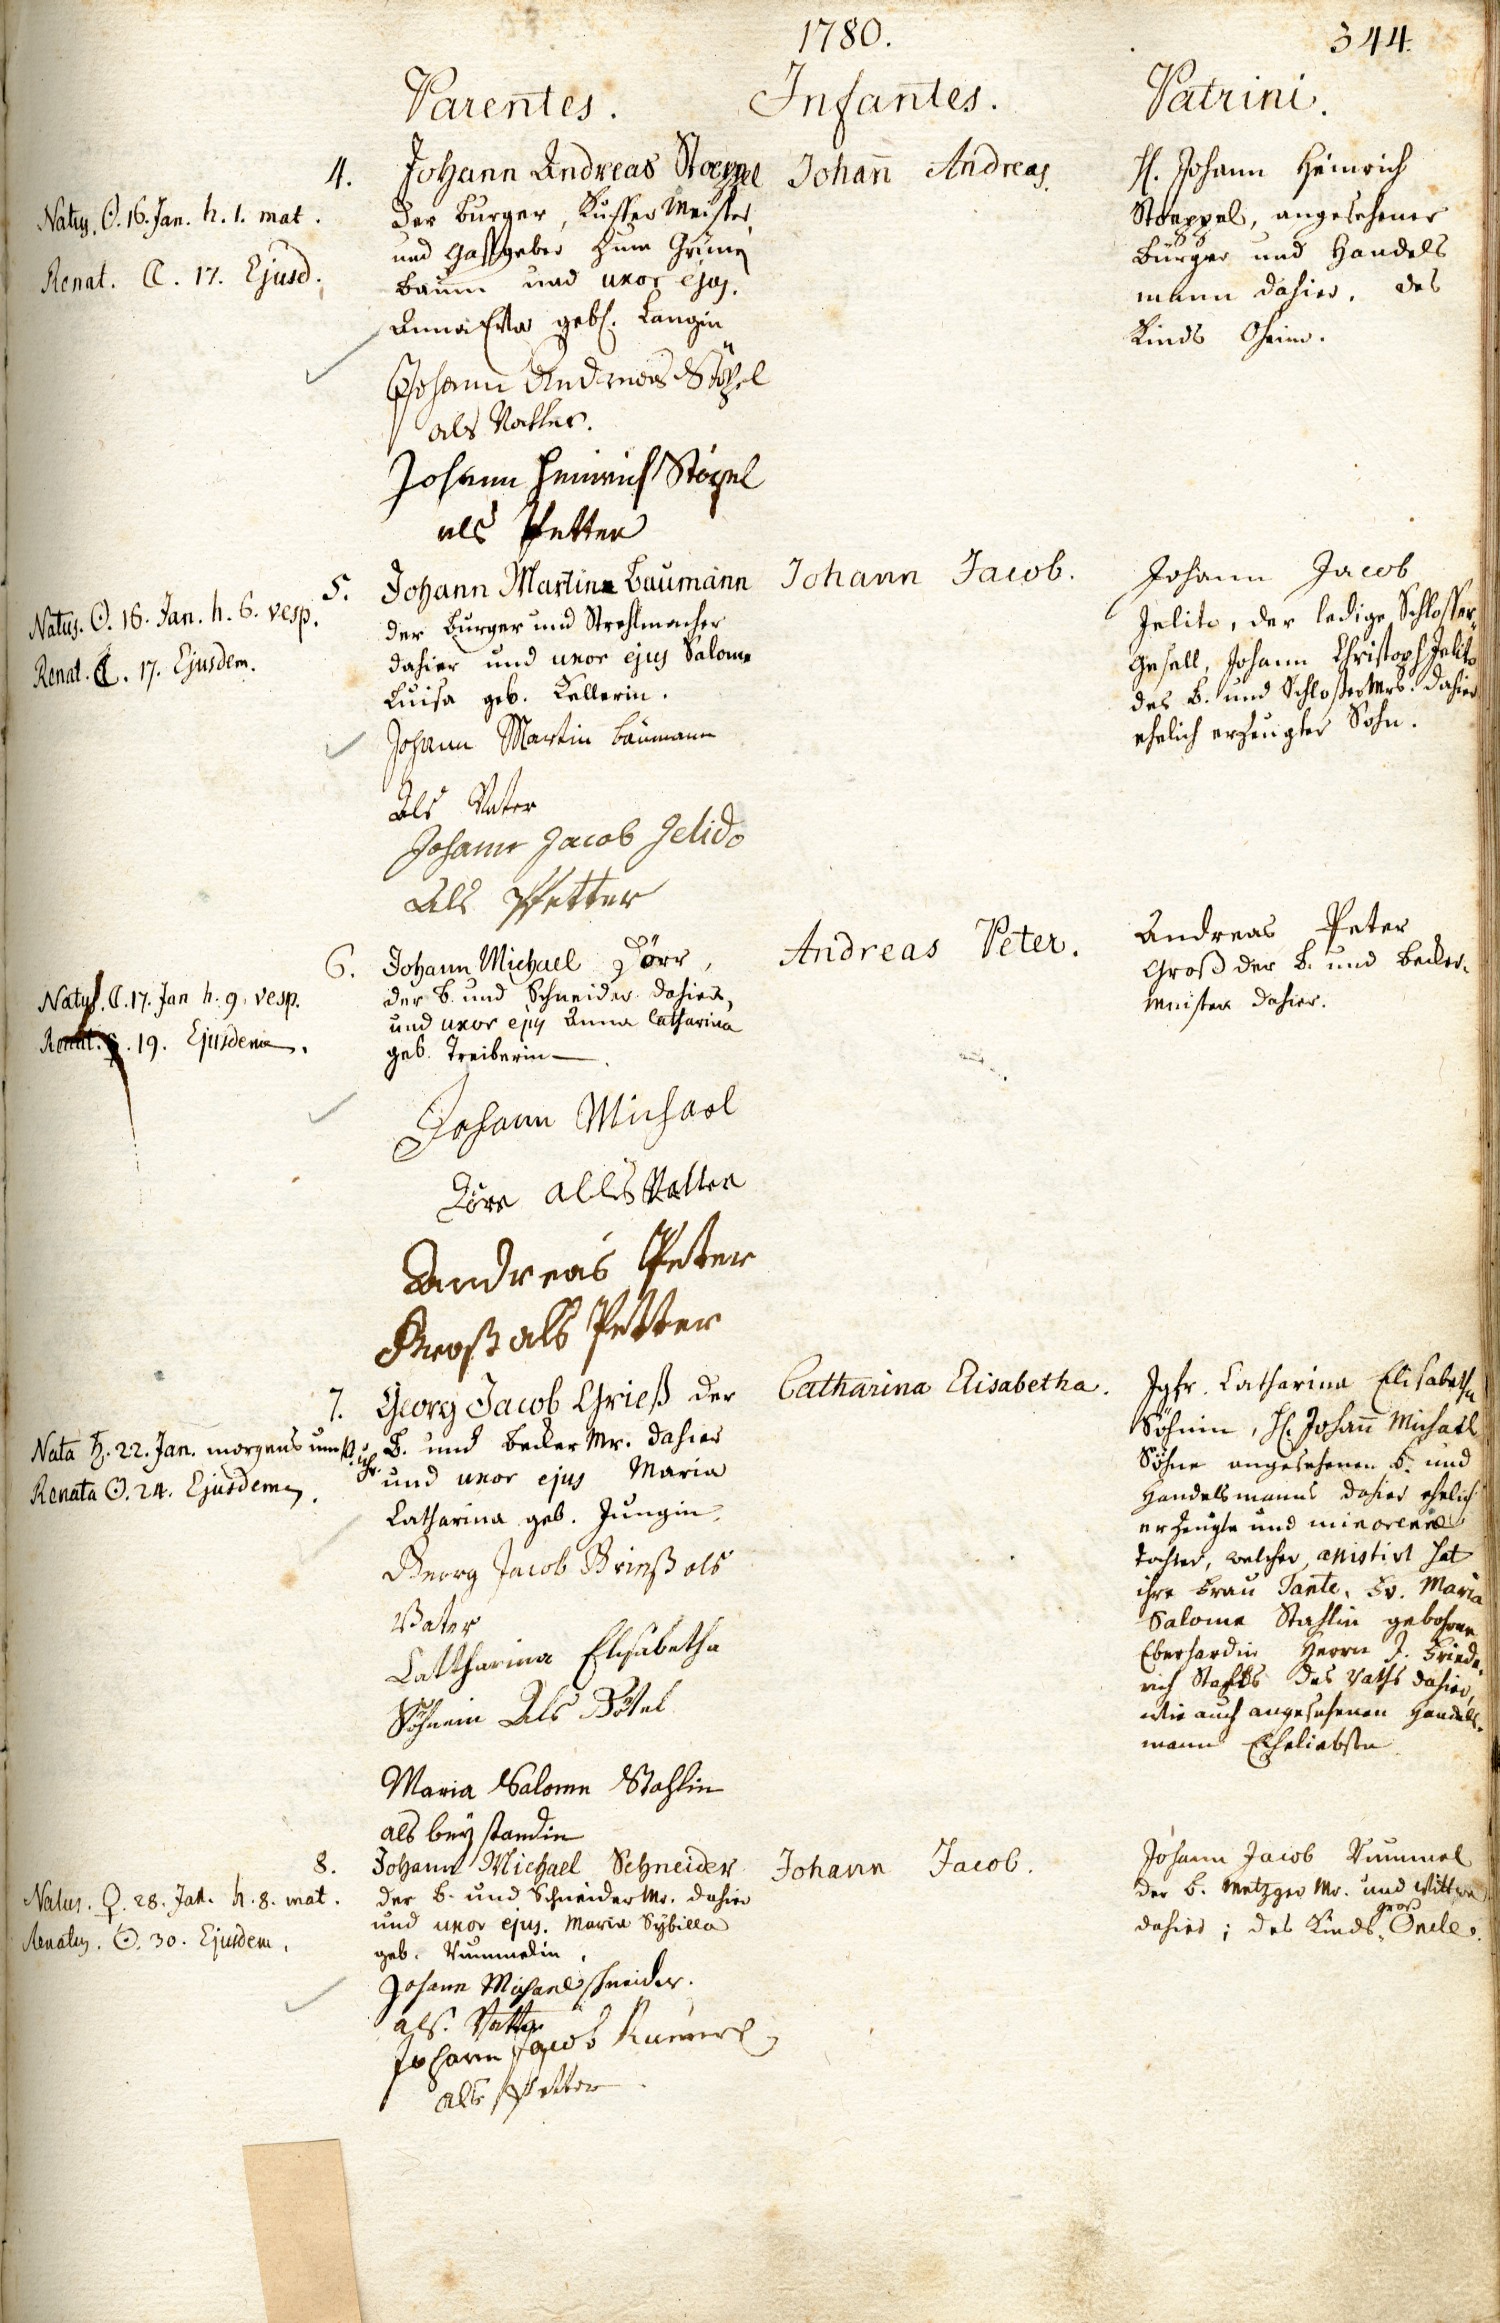 1780.
344.
Parentes.
Infantes.
Patrini.
4.
Natus. ☉. 16. Jan. h. 1. mat.
Renat. ☾. 17. Ejusd.
Johann Andreas Stoeppel
der Burger, Kuffer Meister,
und Gastgeber zum Grünen
Baum und uxor ejus.
Anna Eva geb. Langin
Johann Andreas Stöpel
als Vatter.
Johann Heinrich Stöpel
als Petter
Johañ Andreas.
H. Johann Heinrich
Stoeppel, angesehener
Bürger und Handels
mann dahier, des
Kinds Oheim.
5.
Natus. ☉. 16. Jan. h. 6. vesp.
Renat. ☾. 17. Ejusdem.
Johann Martin Baumann
der Burger und Strehlmacher
dahier und uxor ejus Salome
Luisa geb. Kellerin.
Johann Martin Baumann
Als Vater
Johann Jacob Jelido
Als Pfetter
Johann Jacob.
Johann Jacob
Jelito, der ledige Schlosser-
gesell, Johann Christoph Jelito
des B. und Schlosser Mrs. dahier
ehelich erzeugter Sohn.
6.
Natus. ☾. 17. Jan h. 9. vesp.
Renat. ☿. 19. Ejusdem.
Johann Michael Dörr,
der B. und Schneider dahier,
und uxor ejus Anna Catharina
geb. Treiberin
Johann Michael
Dörr alls Vatter
Andreas Peter
Groß als Petter
Andreas Peter.
Andreas Peter
Groß der B. und Becker-
meister dahier.
7.
Nata ♄. 22. Jan. morgens um
Renata ☉. 24. Ejusdem.
Georg Jacob Grieß der
B. und Becker Mr. dahier
und uxor ejus Maria
Catharina geb. Jungin.
Georg Jacob Grieß als
Vater
Cattharina Elisabetha
Söhnein Als Götel
Maria Salome Stahlin
als bey standin
Catharina Elisabetha.
Jgfr. Catharina Elisabetha
Söhnin, H. Johañ Michael
Söhne angesehenen B. und
Handelsmanns dahier ehelich
erzeugte und minorenne
Tochter, welcher assistirt hat
ihre Frau Tante, Fr. Maria
Salome Stahlin gebohrne
Eberhardin Herrn J. Friede-
rich Stahls des Raths dahier,
wie auch angesehenen Handels-
mann Eheliebste
8.
Natus. ♀. 28. Jan. h. 8. mat.
Renatus. ☉. 30. Ejusdem.
Johann Michael Schneider
der B. und Schneider Mr. dahier
und uxor ejus. Maria Sybilla
geb. Rummelin.
Johann Michael schneider.
als. Vatter
Johann Jacob Rummel
als Petter
Johann Jacob.
Johann Jacob Rummel
der B. Metzger Mr. und Wittwer
dahier; des Kinds groß Oncle.